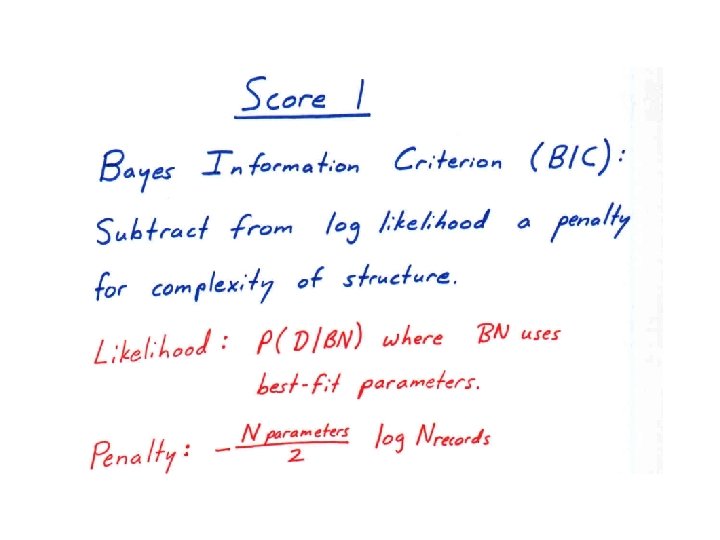 Score 1
Bayes Information Criterion (BIC):
Subtract from log likelihood a penalty
for complexity of structure.
Likelihood: P(D/BN) where BN uses
best-fit parameters.
Penalty: - N parameters / 2 log N records